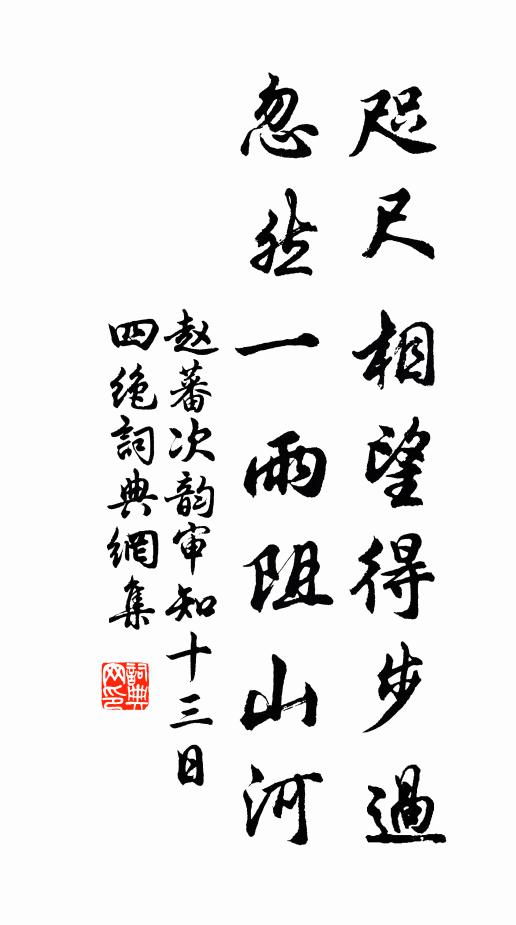 咫尺相望得步過
忽然一雨阻山河
赵蕃次韵审知十三日
四绝詞典網集
詞典网印